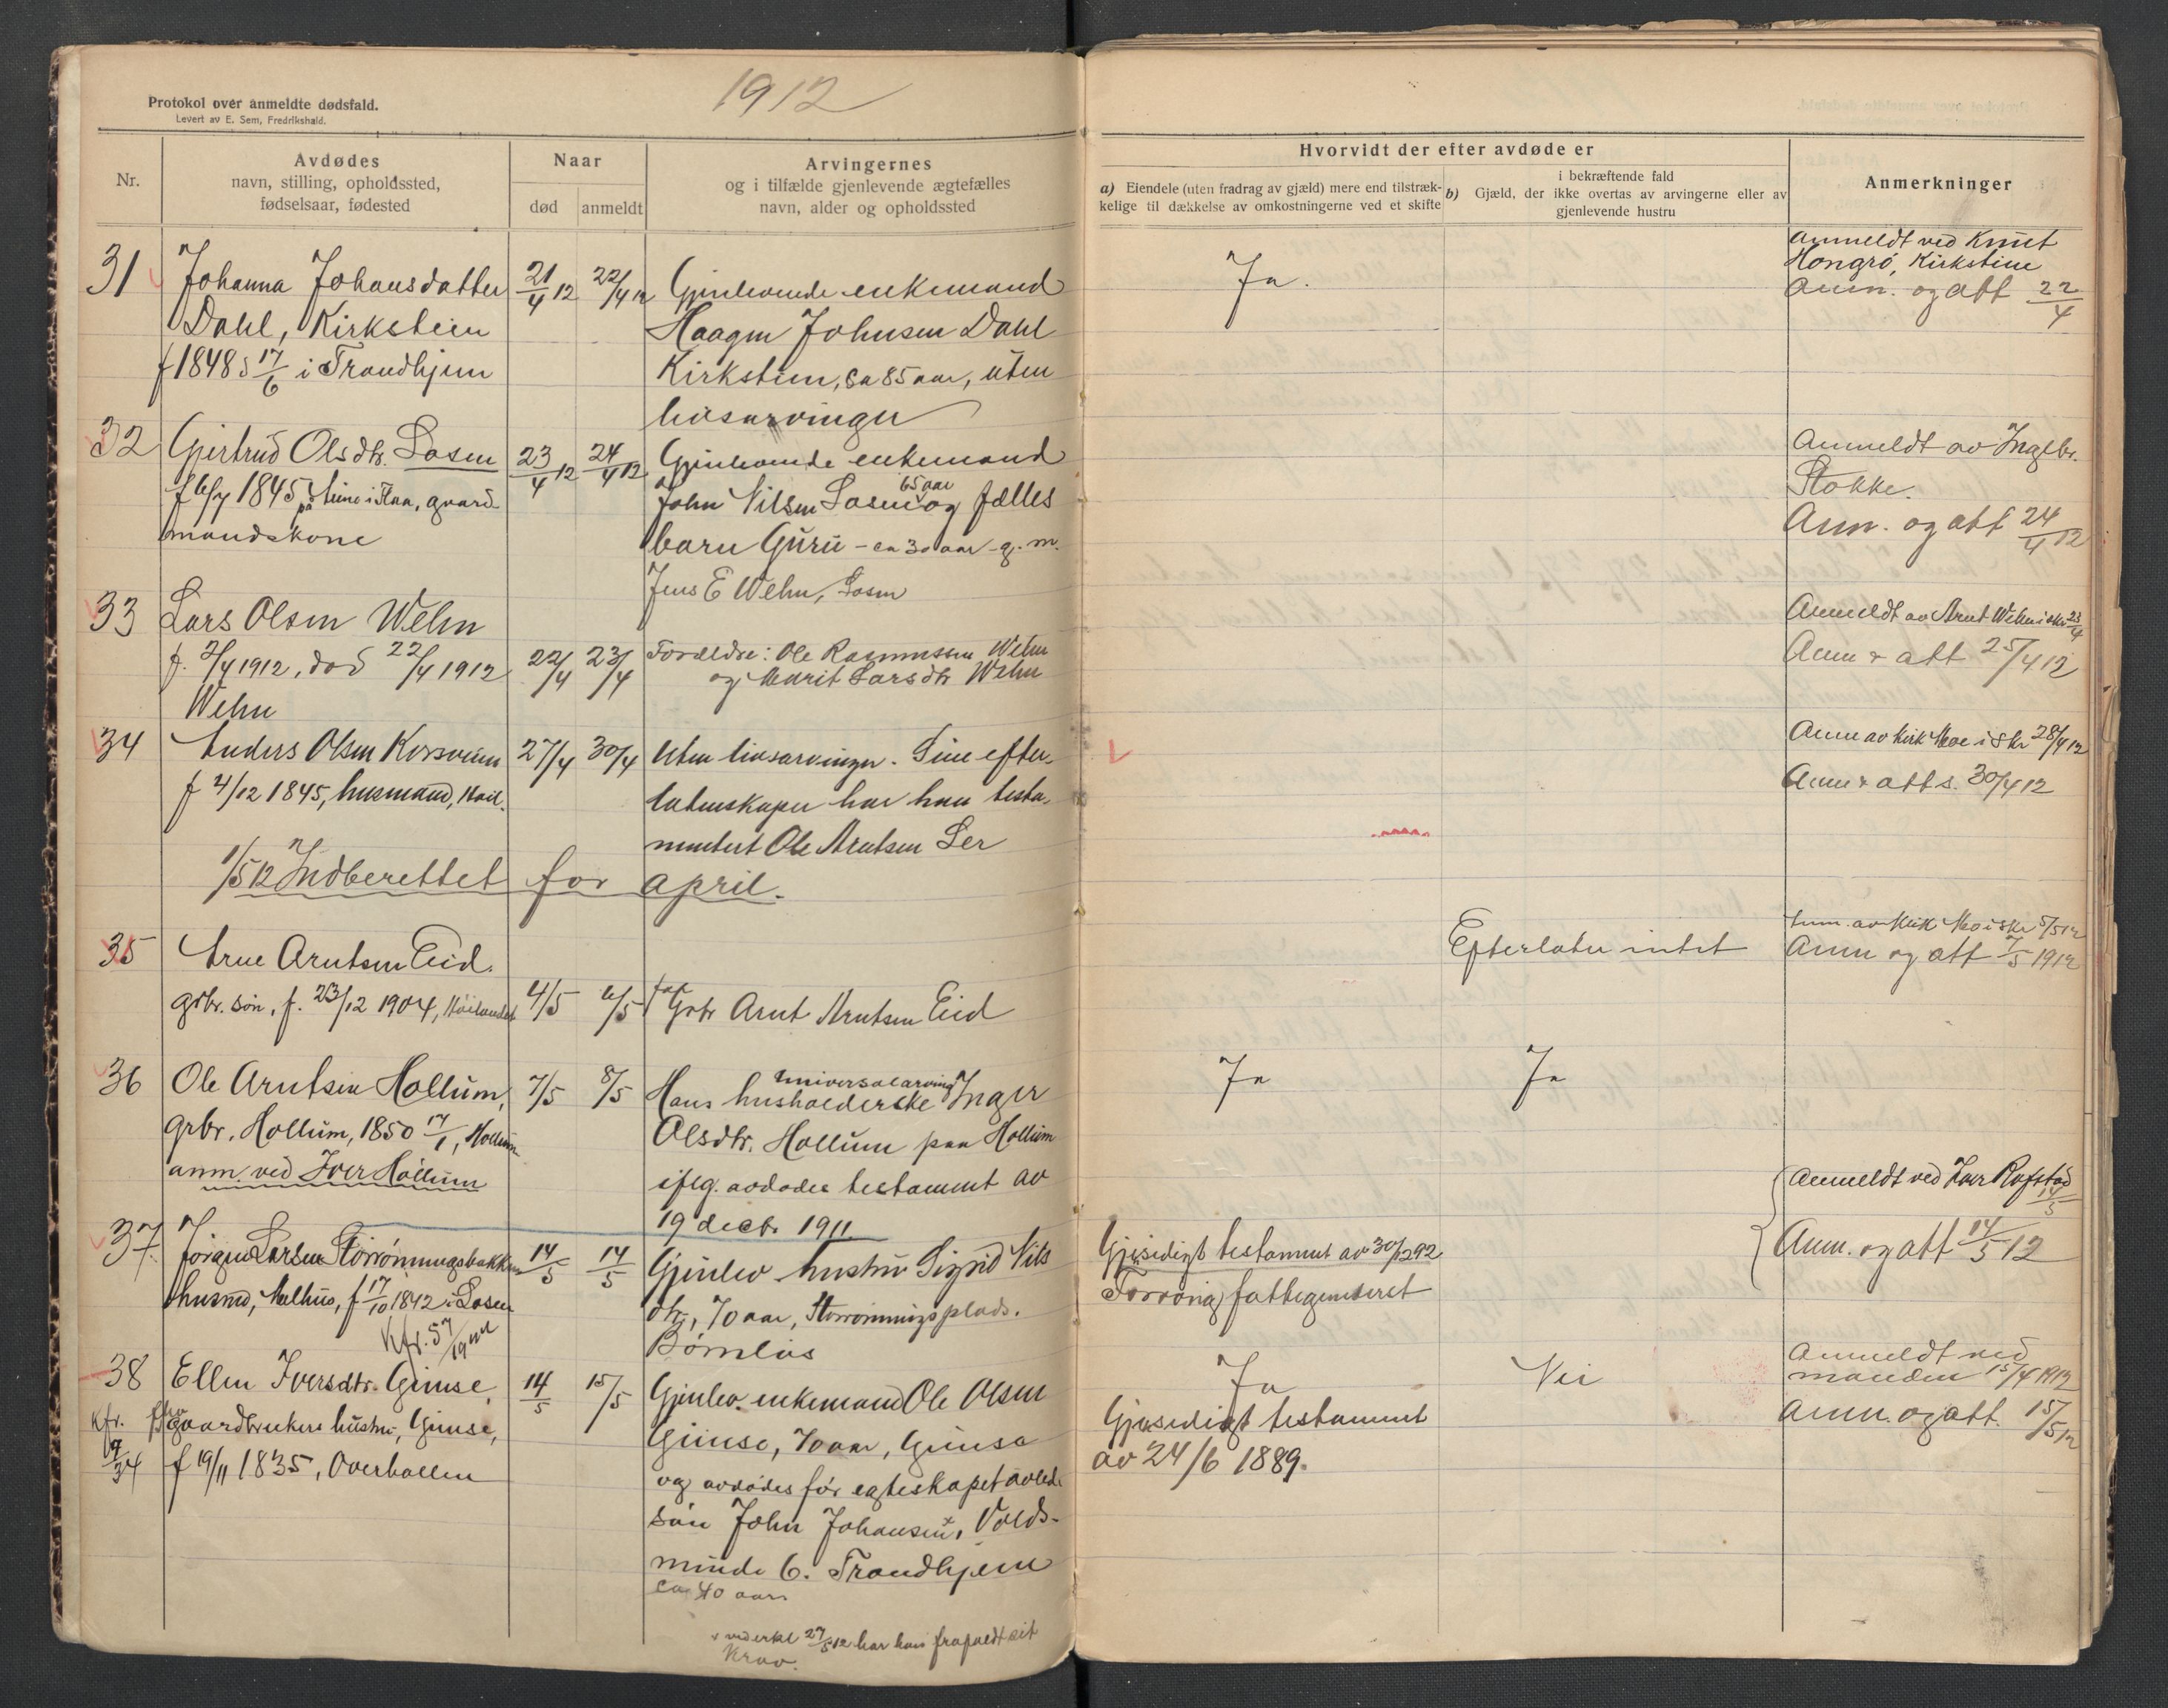 1912
Protokol over anmeldte dødsfald.
Levert av E. Sem, Fredrikshald.
Nr.
Avdødes
navn, stilling, opholdssted,
fødselsaar, fødested
Naar
død
anmeldt
Arvingernes
og i tilfælde gjenlevende ægtefælles
navn, alder og opholdssted
Hvorvidt der efter avdøde er
a) Eiendele (uten fradrag av gjæld) mere end tilstræk-
kelige til dækkelse av omkostningerne ved et skifte
i bekræftende fald
b) Gjæld, der ikke overtas av arvingerne eller av
gjenlevende hustru
Anmerkninger
31
Johanna Johansdatter
Dahl, Kirkstien
f 1848 17/6 i Trondhjem
21/4 12
22/4 12
Gjenlevende enkemand
Haagen Johnsen Dahl
Kirkstien, ca 85 aar, uten
livsarvinger
Ja.
Anmeldt ved Knut
Hongrø, Kirkstien
Anm. og att 22/4
32
Gjertrud Olsdtr. Losen
f 6/7 1845 på i Flaa, gaard-
mandskone
23/4 12
24/4 12
Gjenlevende enkemand
John Nilsen Losen 65 aar og fælles
barn Guru - ca 30 aar - g. m.
Jens E Wehn, Losen
Anmeldt av Ingebr.
Stokke.
Anm. og att 24/4 12
33
Lars Olsen Wehn
f. 2/4 1912, død 22/4 1912
Wehn
22/4
23/4
Forældre: Ole Rasmussen Wehn
og Marit Larsdtr Wehn
Anmeldt av Arnt Wehn i skr 23/4
Anm & att 25/4 12
34
Anders Olsen Korsveien
f 4/12 1845, husmand,
27/4
30/4
Uten livsarvinger. Sine efter-
latenskaper har han testa-
mentert Ole Arntsen Ler
Anm av kirk Moe i skr 28/4 12
Anm & atts. 30/4 12
1/5 12 Indberettet for april.
35
Arne Arntsen Eid.
grbr. søn, f. 23/12 1904, Høilandet
4/5
6/5
far
Grbr Arnt Arntsen Eid
Efterlater intet
Anm. av kirk Moe i skr 5/5 12
Anm og att 7/5 1912
36
Ole Arntsen Hollum,
grbr. Hollum, 1850 17/1, Hollum
anm. ved Iver Hollum
7/5
8/5
Hans husholderske universalarving Inger
Olsdtr. Hollum paa Hollum
iflg. avdødes testament av
19 decbr 1911.
Ja
Ja
37.
Jørgen Larsen Storrønningsbakken
husmd, Melhus, f 17/10 1842 i Losen
Kfr. 57/19
14/5
14/5
Gjenlev hustru Sigrid Nils
dtr., 70 aar, Storrønningsplads.
Barnløs
Gjensidigt testament av 30/12 92
Forøvrig fattigunderst
Anmeldt ved Iver Rofstad
14/5
Anm. og att 14/5 12
38
Ellen Iversdtr. Gimse,
fhv gaardbrukers hustru, Gimse,
f 19/11 1835, Overhallen
Kfr.
9/34
14/5
15/5
Gjenlev. enkemand Ole Olsen
Gimse, 70 aar, Gimse
og avdødes før egteskapet avlede
søn John Johansen x, Volds-
minde 6. Trondhjem
ca 40 aar.
x ved erkl 27/5 12 har han frafaldt sit
krav.
Ja
Gjensidigt testament
av 24/6 1889.
Nei
Anmeldt ved
manden 15/4 1912
Anm. og att. 15/5 12